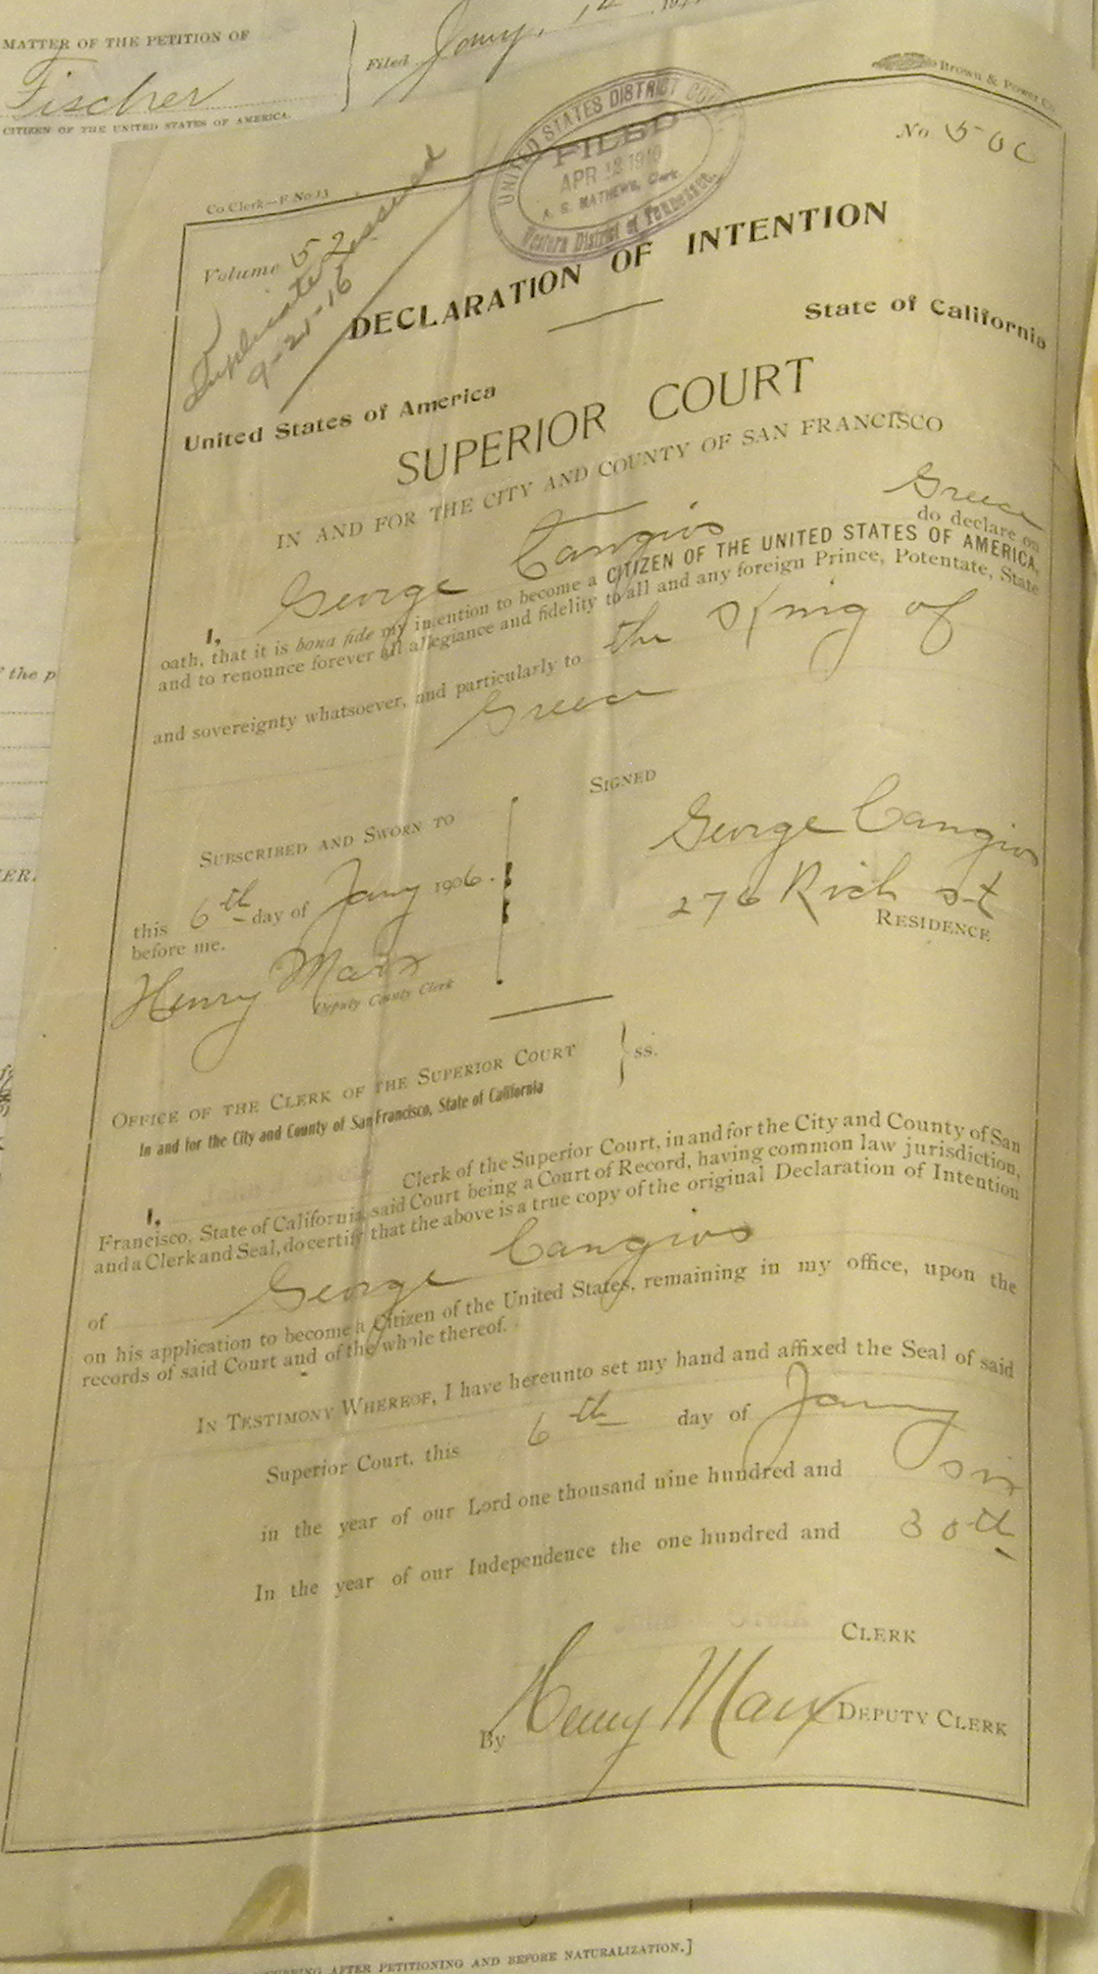 MATTER OF THE PETITION OF
Fischer
CITIZEN OF THE UNITED STATES OF AMERICA.
Filed Jany. 12
Brown & Power Co
UNITED STATES DISTRICT
FILED
APR 1910
A. S. MATHEWS, Clerk.
Western District of Tennessee.
No. 500
Co Clerk—F No 13
Volume 52
Duplicate issued
9-21-16
DECLARATION OF INTENTION
United States of America
State of California
SUPERIOR COURT
IN AND FOR THE CITY AND COUNTY OF SAN FRANCISCO
Greece
I, George Cangios do declare on
oath, that it is bona fide my intention to become a CITIZEN OF THE UNITED STATES OF AMERICA,
and to renounce forever all allegiance and fidelity to all and any foreign Prince, Potentate, State
and sovereignty whatsoever, and particularly to the King of
Greece
SIGNED
SUBSCRIBED AND SWORN TO
George Cangios
this 6th day of Jany 1906.
276 Rich st
before me.
RESIDENCE
Henry Marx
Deputy County Clerk
OFFICE OF THE CLERK OF THE SUPERIOR COURT } ss.
In and for the City and County of San Francisco, State of California
I, Clerk of the Superior Court, in and for the City and County of San
Francisco, State of California, said Court being a Court of Record, having common law jurisdiction,
and a Clerk and Seal, do certify that the above is a true copy of the original Declaration of Intention
of George Cangios
on his application to become a Citizen of the United States, remaining in my office, upon the
records of said Court and of the whole thereof.
IN TESTIMONY WHEREOF, I have hereunto set my hand and affixed the Seal of said
Superior Court, this 6th day of Jany
in the year of our Lord one thousand nine hundred and six
In the year of our Independence the one hundred and 30th
CLERK
By Henry Marx DEPUTY CLERK
AFTER PETITIONING AND BEFORE NATURALIZATION.]